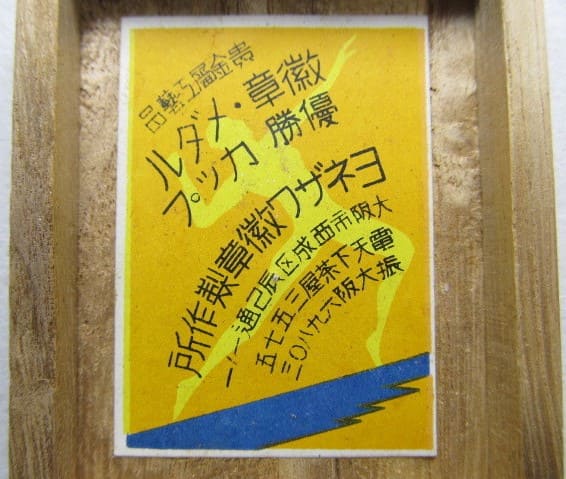 貴金属工藝品
徽章・メダル
優勝カップ
ヨネザワ徽章製作所
大阪市西成区辰己通
電天下茶屋三五七五
振大阪六九八〇三